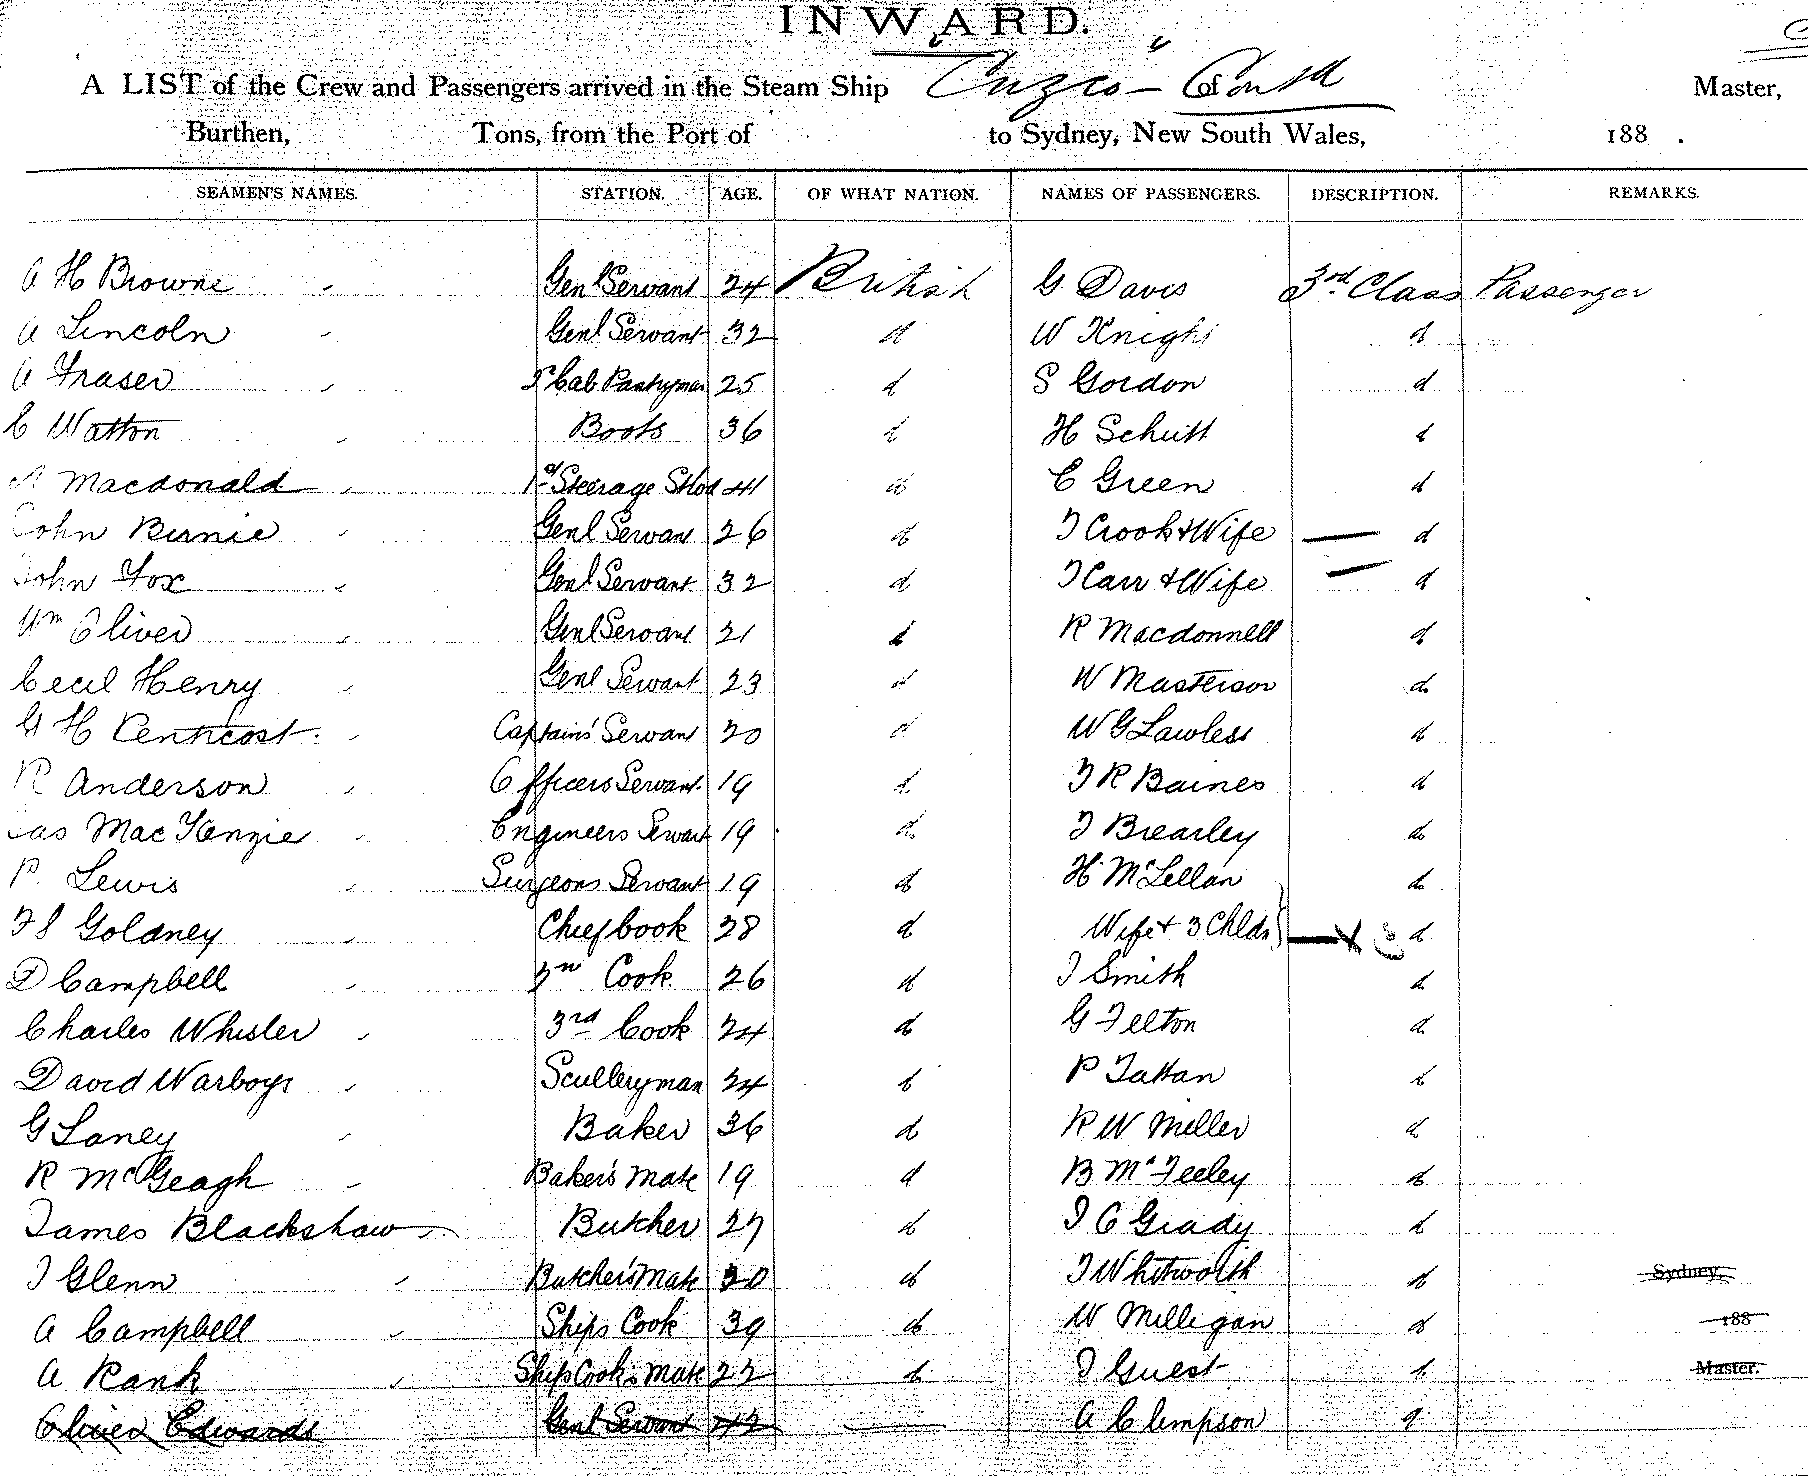 INWARD.
A LIST of the Crew and Passengers arrived in the Steam Ship "Cuzco" – Contd of Master,
Burthen, Tons, from the Port of to Sydney, New South Wales, 188 .
SEAMEN'S NAMES. STATION. AGE. OF WHAT NATION. NAMES OF PASSENGERS. DESCRIPTION. REMARKS.
A H Browne Genl Servant 24 British G Davis 3rd Class Passenger
A Lincoln Genl Servant 32 do W Knight do
A Fraser Cab Pastryman 25 do S Gordon do
C Watton Boots 36 do H Schutt do
Macdonald Steerage Stwd 41 do C Green do
John Birnie Genl Servant 26 do J Crook & Wife — do
John Fox Genl Servant 32 do J Carr & Wife — do
Wm Oliver Genl Servant 21 do R Macdonnell do
Cecil Henry Genl Servant 23 do W Masterson do
G H Penticost Captain's Servant 20 do W G Lawless do
R Anderson Officers Servant 19 do J R Baines do
Jas MacKenzie Engineers Servant 19 do J Brearley do
P. Lewis Surgeons Servant 19 do H McLellan do
Goldney Chief Cook 28 do Wife & 3 Chldn do
D Campbell 2nd Cook 26 do J Smith do
Charles Whisler 3rd Cook 24 do G Felton do
David Warboys Sculleryman 24 do P Tattan do
G Laney Baker 36 do R W Miller do
R McGeagh Baker's Mate 19 do B McFeeley do
James Blackshaw Butcher 27 do J O Grady do
J Glenn Butcher's Mate 20 do J Whitworth do Sydney,
A Campbell Ships Cook 39 do W Milligan do 188
A Rank Ships Cook's Mate 22 do J Guest do Master.
Oliver Edwards Genl Servant 42 — A Climpson do